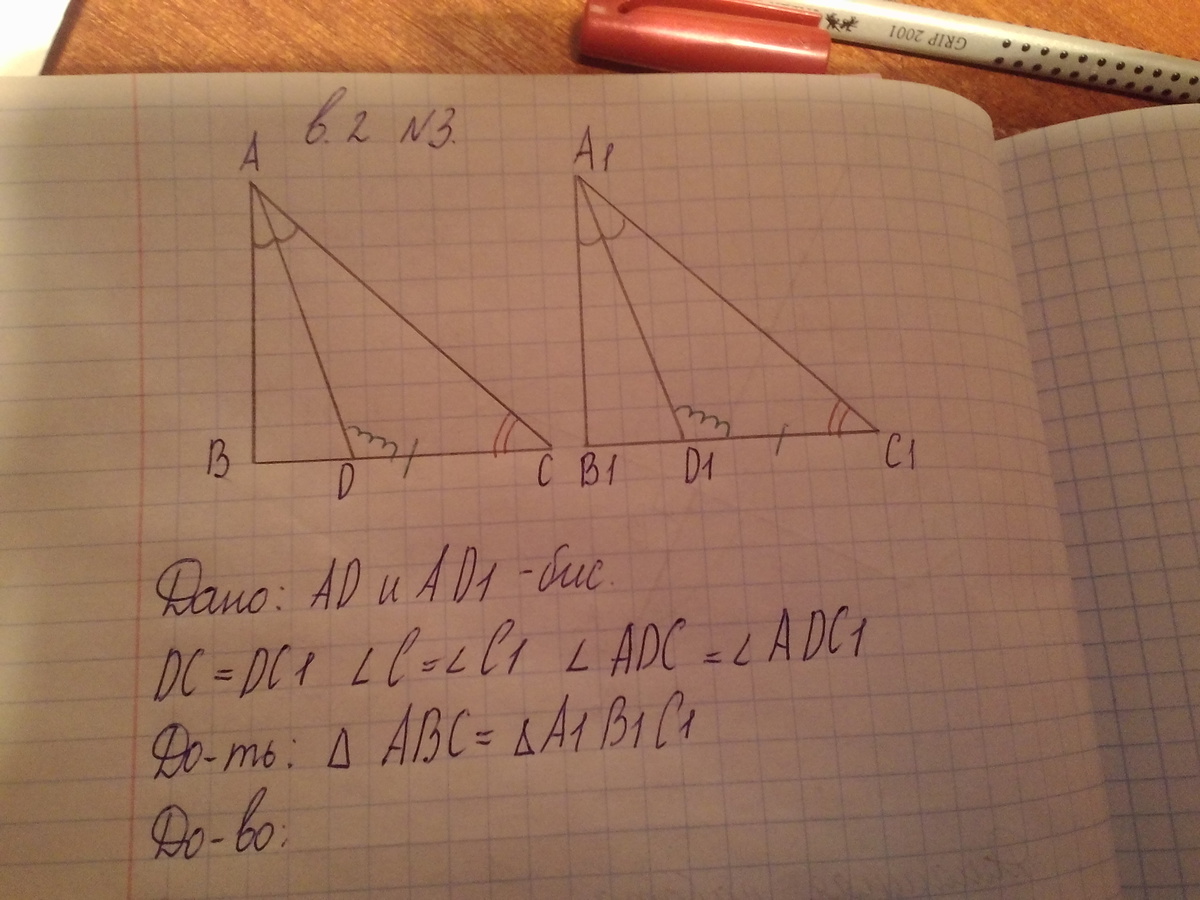 GRIP 2001
в.2 N3.
A A1
B D C B1 D1 C1
Дано: AD и AD1 -бис.
DC=DC1 ∠C=∠C1 ∠ADC=∠ADC1
До-ть: Δ ABC=ΔA1B1C1
До-во: